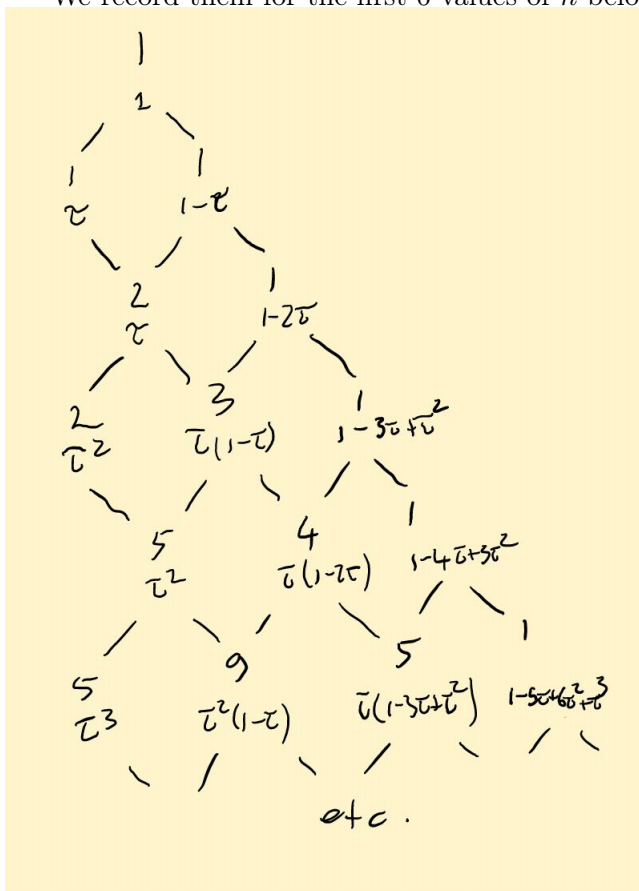 We record them for the first 6 values of n belo
1
1
1 1
τ 1-τ
2 1
τ 1-2τ
2 3 1
τ² τ(1-τ) 1-3τ+τ²
5 4 1
τ² τ(1-2τ) 1-4τ+3τ²
5 9 5 1
τ³ τ²(1-τ) τ(1-3τ+τ²) 1-5τ+6τ²+τ³
etc.